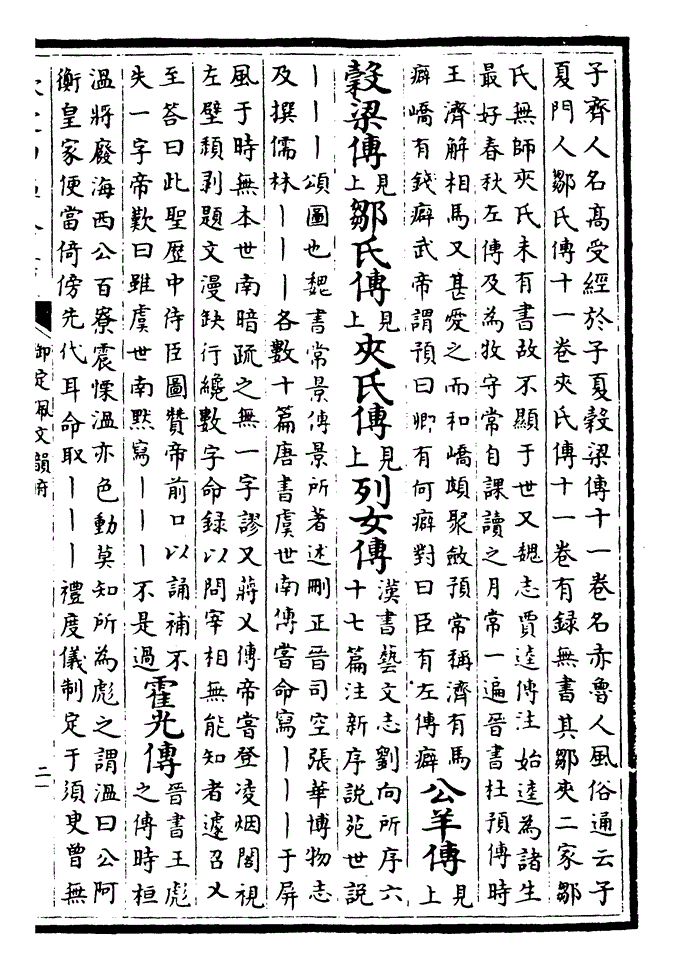 子齊人名髙受經於子夏穀梁傳十一卷名赤魯人風俗通云子
夏門人鄒氏傳十一卷夾氏傳十一卷有録無書其鄒夾二家鄒
氏無師夾氏未有書故不顯于世又魏志賈逵傳注始逵為諸生
最好春秋左傳及為牧守常自課讀之月常一遍晉書杜預傳時
王濟解相馬又甚愛之而和嶠頗聚斂預常稱濟有馬
癖嶠有錢癖武帝謂預曰卿有何癖對曰臣有左傳癖
公羊傳見上
穀梁傳見上鄒氏傳見上夾氏傳見上列女傳漢書藝文志劉向所序六
十七篇注新序説苑世説
丨丨丨頌圖也魏書常景傳景所著述刪正晉司空張華博物志
及撰儒林丨丨丨各數十篇唐書虞世南傳嘗命寫丨丨丨于屏
風于時無本世南暗疏之無一字謬又蔣乂傳帝嘗登凌烟閣視
左壁頽剥題文漫缺行纔數字命録以問宰相無能知者遽召乂
至答曰此聖歴中侍臣圖贊帝前口以誦補不
失一字帝歎曰雖虞世南黙寫丨丨丨不是過
霍光傳晉書王彪
之傳時桓
温將廢海西公百寮震慄温亦色動莫知所為彪之謂温曰公阿
衡皇家便當倚傍先代耳命取丨丨丨禮度儀制定于須臾曾無
御定佩文韻府
二一